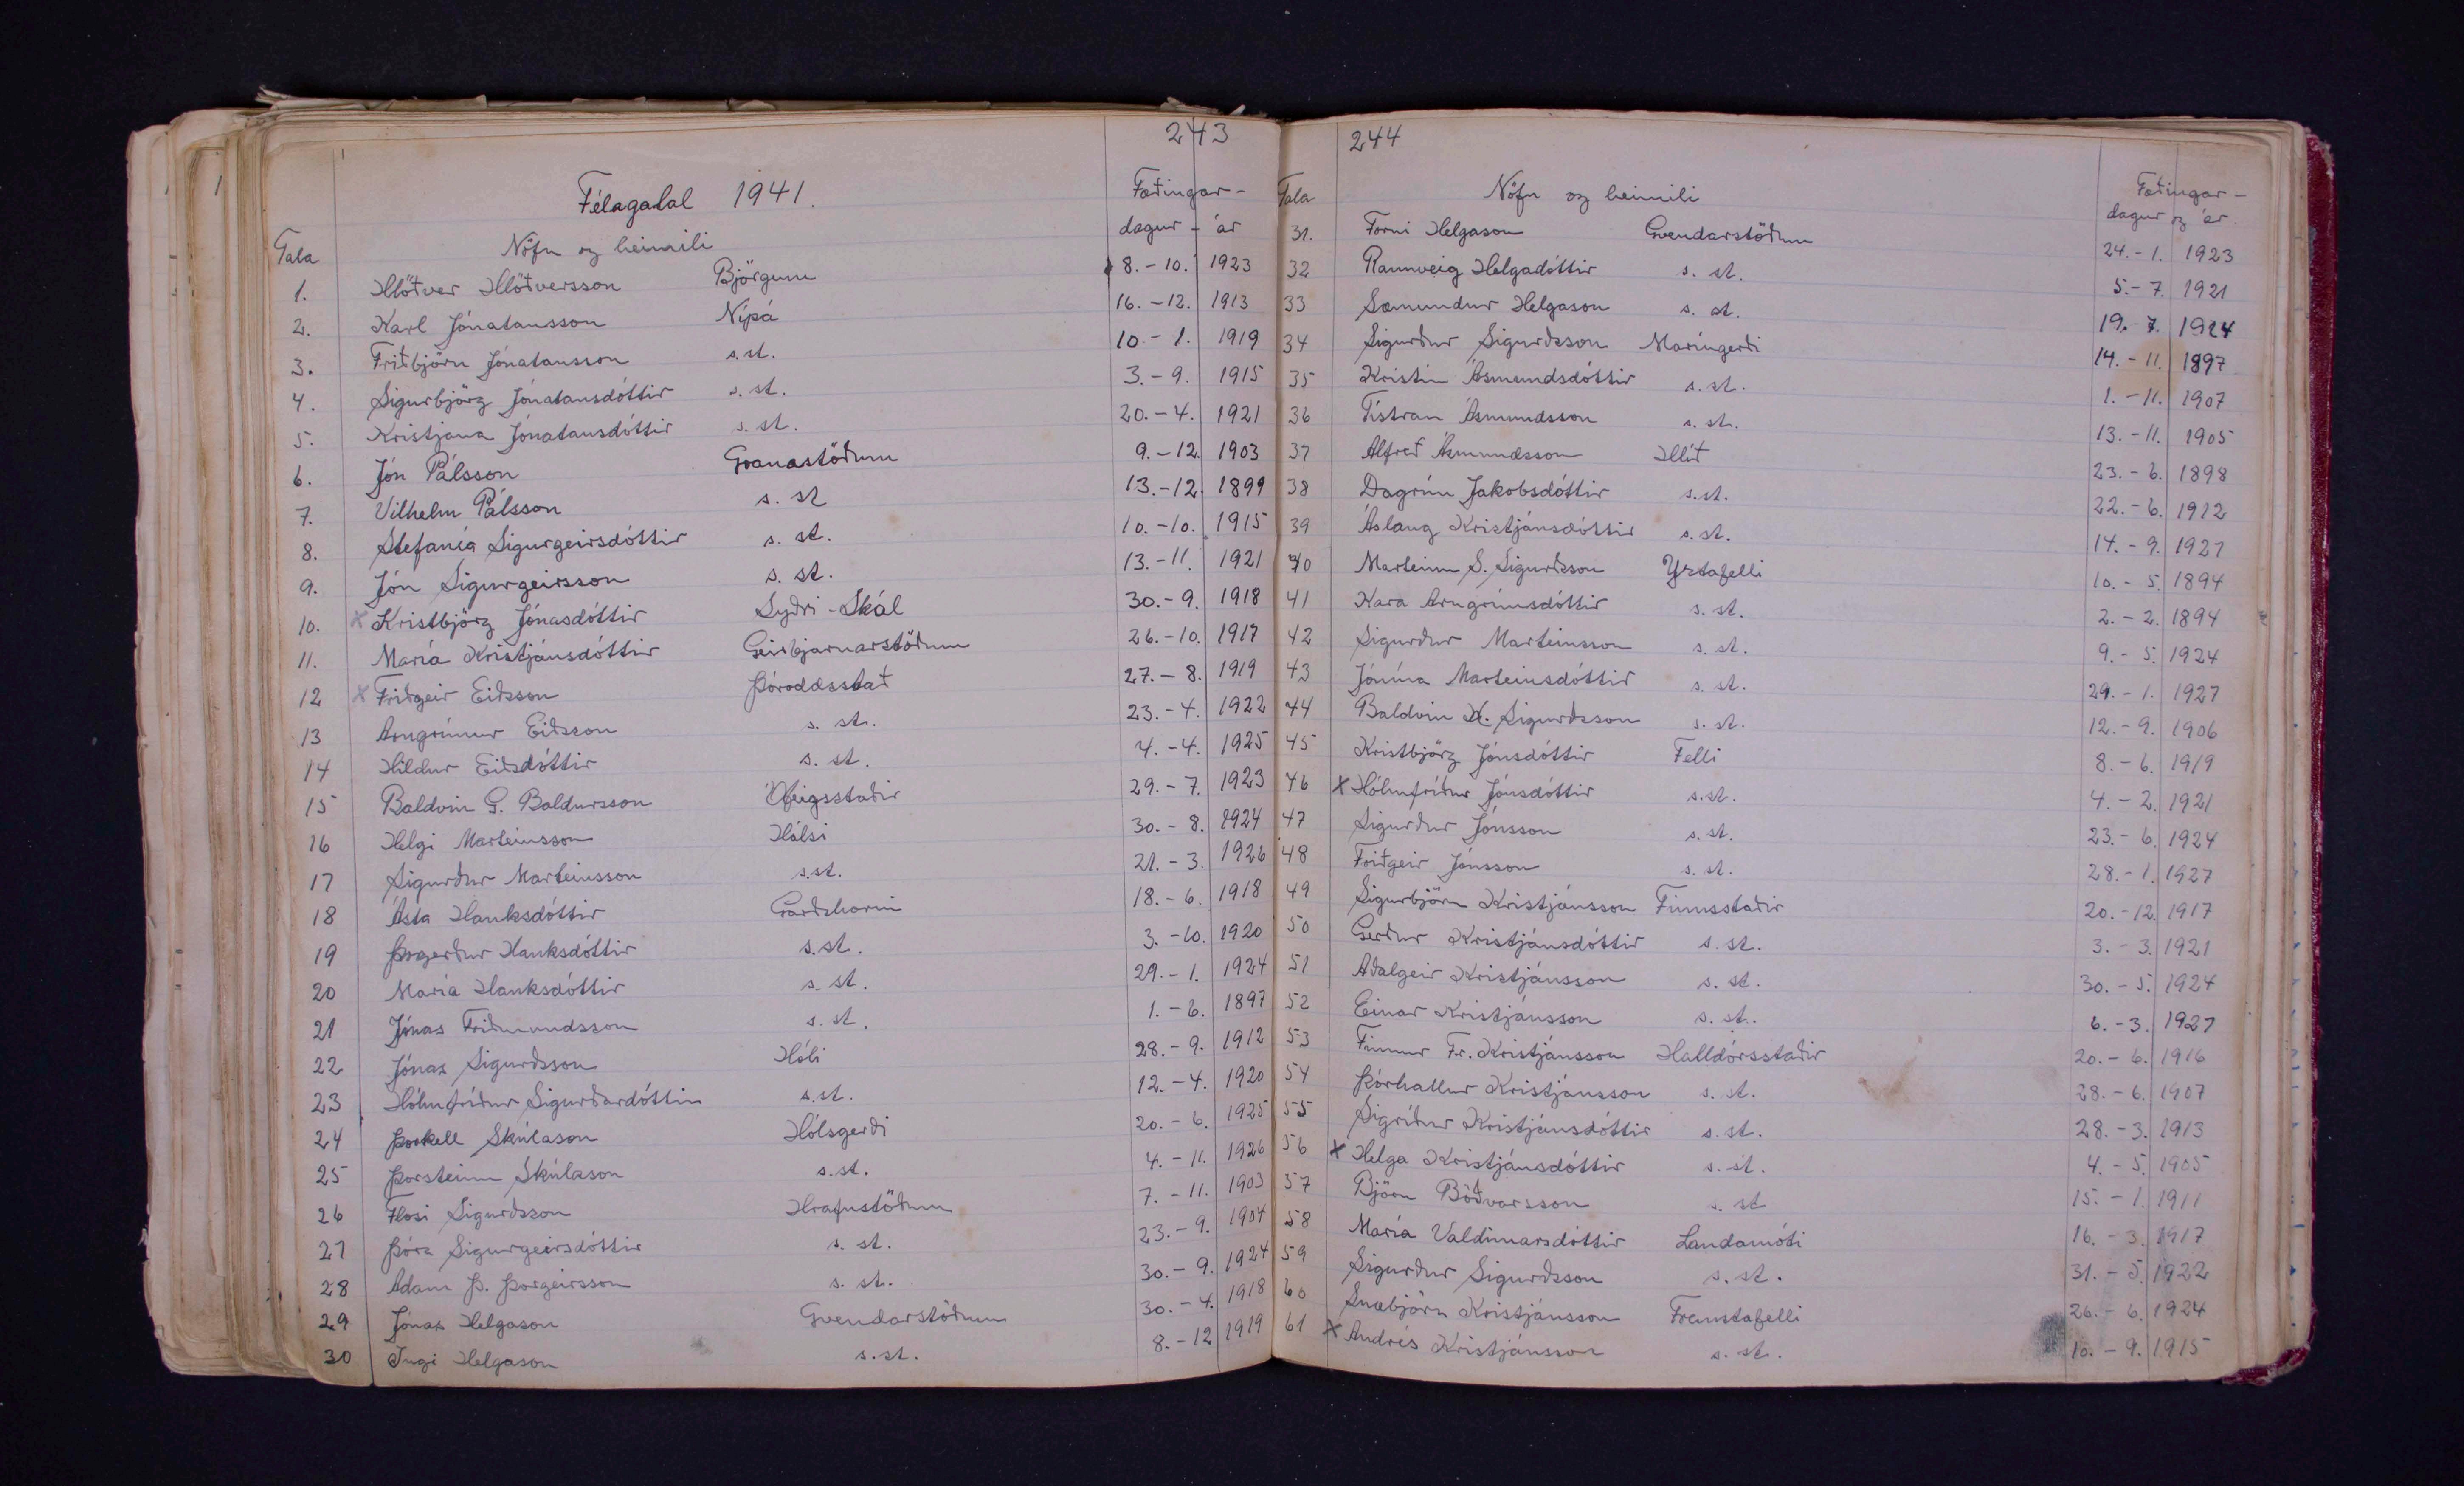 243
Félagatal 1941.
Fæðingar-
Tala Nöfn og heimili dagur - ár
1. Hlöðver Hlöðversson Björgum 8.-10. 1923
2. Karl Jónatansson Nípá 16.-12. 1913
3. Friðbjörn Jónatansson s.st. 10-1. 1919
4. Sigurbjörg Jónatansdóttir s.st. 3.-9. 1915
5. Kristjana Jónatansdóttir s.st. 20.-4. 1921
6. Jón Pálsson Granastöðum 9.-12. 1903
7. Vilhelm Pálsson s.st 13.-12. 1899
8. Stefanía Sigurgeirsdóttir s.st. 10.-10. 1915
9. Jón Sigurgeirsson s.st. 13.-11. 1921
10. x Kristbjörg Jónasdóttir Syðri-Skál 30.-9. 1918
11. María Kristjánsdóttir Geirbjarnarstöðum 26.-10. 1917
12 x Friðgeir Eiðsson Þóroddsstað 27.-8. 1919
13 Arngrímur Eiðsson s.st. 23.-4. 1922
14 Hildur Eiðsdóttir s.st. 4.-4. 1925
15 Baldvin G. Baldursson Ófeigsstaðir 29.-7. 1923
16 Helgi Marteinsson Hálsi 30.-8. 1924
17 Sigurður Marteinsson s.st. 21.-3. 1926
18 Ásta Hauksdóttir Garðshorni 18.-6. 1918
19 Þorgerður Hauksdóttir s.st. 3.-10. 1920
20 María Hauksdóttir s.st. 29.-1. 1924
21 Jónas Friðmundsson s.st. 1.-6. 1897
22 Jónas Sigurðsson Hóli 28.-9. 1912
23 Hólmfríður Sigurðardóttir s.st. 12.-4. 1920
24 Þorkell Skúlason Hólsgerði 20.-6. 1925
25 Þorsteinn Skúlason s.st. 4.-11. 1926
26 Flosi Sigurðsson Hrafnstöðum 7.-11. 1903
27 Þóra Sigurgeirsdóttir s.st. 23.-9. 1904
28 Adam Þ. Þorgeirsson s.st. 30.-9. 1924
29 Jónas Helgason Gvendarstöðum 30.-4. 1918
30 Ingi Helgason s.st. 8.-12 1919
244
Tala Nöfn og heimili Fæðingar-
dagur og ár.
31. Forni Helgason Gvendarstöðum 24.-1. 1923
32 Rannveig Helgadóttir s.st. 5.-7. 1921
33 Sæmundur Helgason s.st. 19.-7. 1924
34 Sigurður Sigurðsson Maríugerði 14.-11. 1897
35 Kristín Ásmundsdóttir s.st. 1.-11. 1907
36 Tístran Ásmundsson s.st. 13.-11. 1905
37 Alfreð Ásmundsson Hlíð 23.-6. 1898
38 Dagrún Jakobsdóttir s.st. 22.-6. 1912
39 Áslaug Kristjánsdóttir s.st. 14.-9. 1927
40 Marteinn S. Sigurðsson Yztafelli 10.-5. 1894
41 Kara Arngrímsdóttir s.st. 2.-2. 1894
42 Sigurður Marteinsson s.st. 9.-5. 1924
43 Jónína Marteinsdóttir s.st. 29.-1. 1927
44 Baldvin K. Sigurðsson s.st. 12.-9. 1906
45 Kristbjörg Jónsdóttir Felli 8.-6. 1919
46 x Hólmfríður Jónsdóttir s.st. 4.-2. 1921
47 Sigurður Jónsson s.st. 23.-6. 1924
48 Friðgeir Jónsson s.st. 28.-1. 1927
49 Sigurbjörn Kristjánsson Finnsstaðir 20.-12. 1917
50 Gerður Kristjánsdóttir s.st. 3.-3. 1921
51 Aðalgeir Kristjánsson s.st. 30.-5. 1924
52 Einar Kristjánsson s.st. 6.-3. 1927
53 Finnur Fr. Kristjánsson Halldórsstaðir 20.-6. 1916
54 Þórhallur Kristjánsson s.st. 28.-6. 1907
55 Sigríður Kristjánsdóttir s.st. 28.-3. 1913
56 x Helga Kristjánsdóttir s.st. 4.-5. 1905
57 Björn Böðvarsson s.st 15.-1. 1911
58 María Valdimarsdóttir Landamóti 16.-3. 1917
59 Sigurður Sigurðsson s.st. 31.-5. 1922
60 Snæbjörn Kristjánsson Fremstafelli 26.-6. 1924
61 x Andrés Kristjánsson s.st. 10.-9. 1915